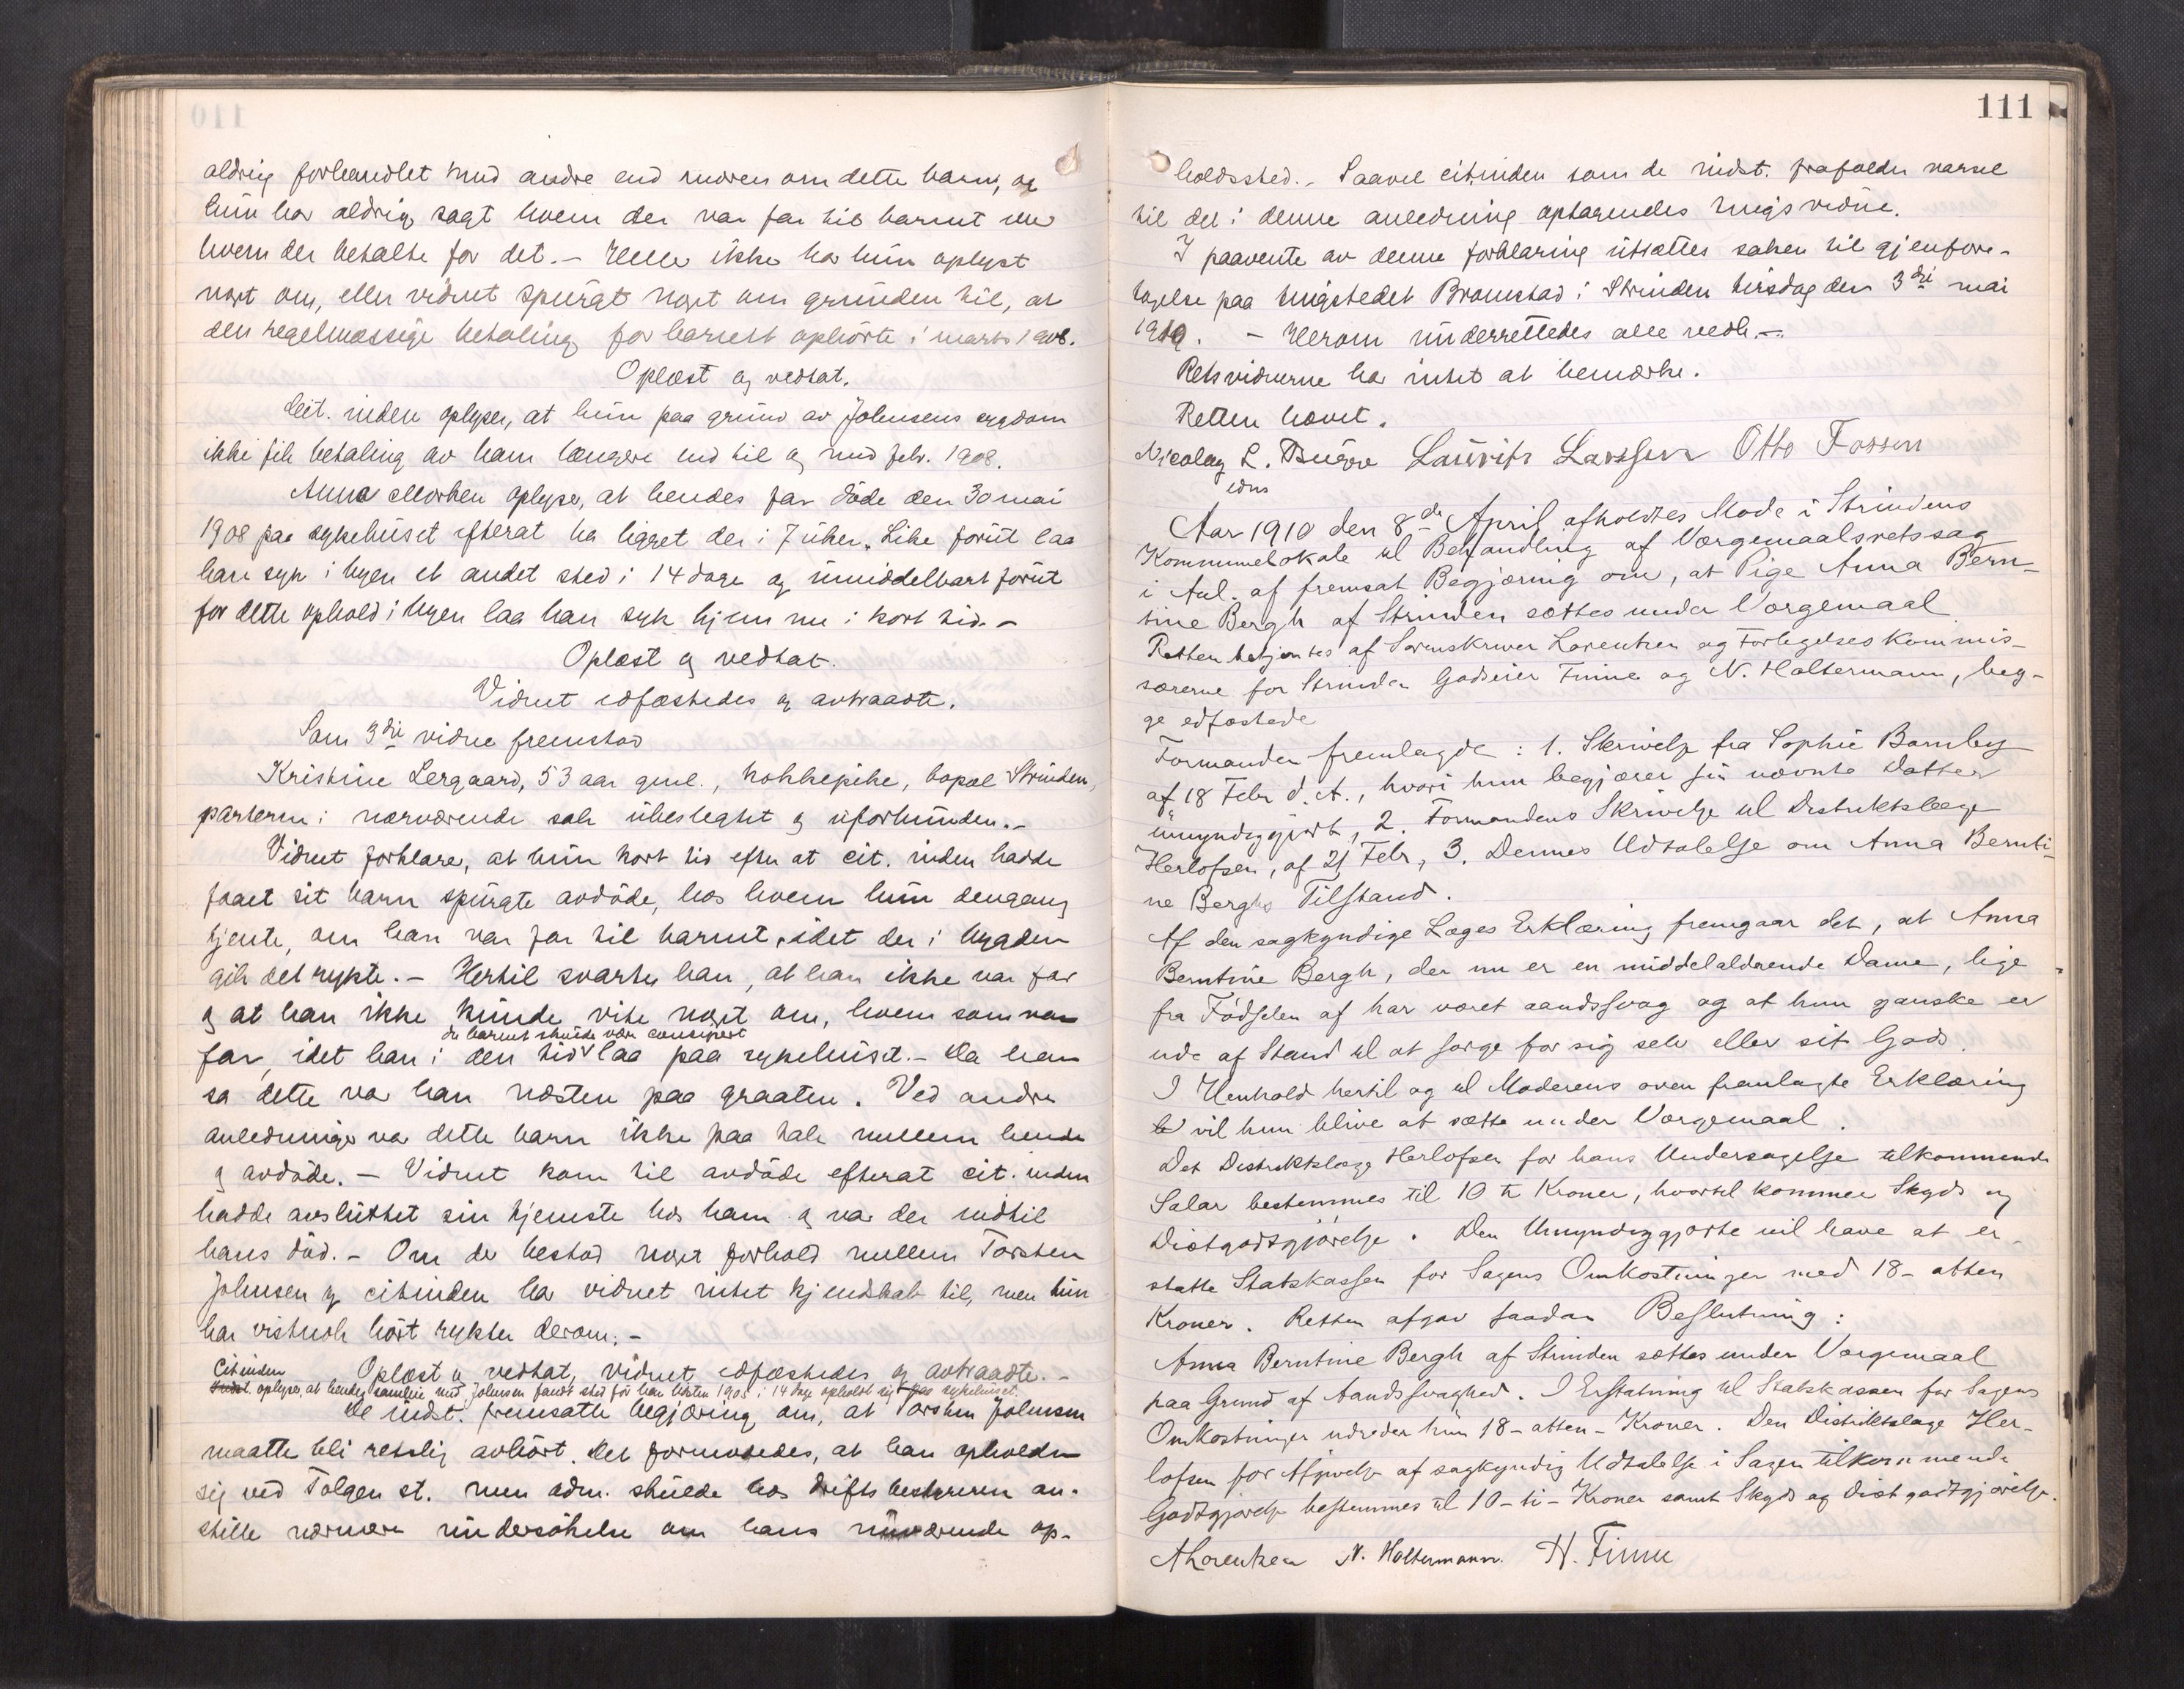 110
aldrig forhandlet med andre end moren om dette barn, og
hun har aldrig sagt hvem der var far til barnet eller
hvem der betalte for det. – Heller ikke har hun oplyst
noget om, eller vidnet spurgt noget om grunden til, at
den regelmæssige betaling for barnet ophørte i marts 1908.
Oplæst og vedtat.
Cit. inden oplyser, at hun paa grund av Johnsens sygdom
ikke fik betaling av ham længere end til og med febr. 1908.
Anna Morken oplyser, at hendes far døde den 30 mai
1908 paa sykehuset efterat ha ligget der i 7 uker. Like forut laa
han syk i byen et andet sted i 14 dage og umiddelbart forut
for dette ophold i byen laa han syk hjemme i kort tid. –
Oplæst og vedtat.
Vidnet edfæstedes og avtraadte.
Som 3die vidne fremstod
Kristine Lergaard, 53 aar gml., kokkepike, bopæl Strinden,
parterne i nærværende sak ubeslegtet og uforbunden. –
Vidnet forklarer, at hun kort tid efter at cit. inden hadde
faaet sit barn spurgte avdøde, hos hvem hun dengang
tjente, om han var far til barnet, idet der i bygden
gik det rykte. – Hertil svarte han, at han ikke var far
og at han ikke kunde vite noget om, hvem som var
der barnet skulde være concipert
far, idet han i den tid laa paa sykehuset. – Da han
sa dette var han næsten paa graaten. Ved andre
anledninger var dette barn ikke paa tale mellem hende
og avdøde. – Vidnet kom til avdøde efterat cit. inden
hadde avsluttet sin tjeneste hos ham og var der indtil
hans død. – Om der bestod noget forhold mellem Torsten
Johnsen og citinden har vidnet intet kjendskab til, men hun
har vistnok hørt rykter derom. –
Oplæst og vedtat, vidnet edfæstedes og avtraadte. –
Citinden oplyser, at hendes samleie med Johnsen fandt sted før han høsten 1905 i 14 dage opholdt sig paa sykehuset.
De indst. fremsatte begjæring om, at Torsten Johnsen
maatte bli retslig avhørt. Det formodedes, at han opholder
sig ved Tolgen st. men adm. skulde hos driftsbestyreren an-
stille nærmere undersøkelse om hans nuværende op-
111
holdssted. – Saavel citinden som de indst. frafalder varsel
til det i denne anledning optagendes tingsvidne.
I paavente av denne forklaring utsættes saken til gjenfore-
tagelse paa tingstedet Bromstad i Strinden tirsdag den 3die mai
1910. – Herom underrettedes alle vedk. –
Retsvidnerne har intet at bemærke.
Retten hævet.
Nicolay L. Bugge Lauritz Larssen Otto Fossen
edns
Aar 1910 den 8de April afholdtes Møde i Strindens
Kommunelokale til Behandling af Værgemaalsretssag
i Anl. af fremsat Begjæring om, at Pige Anna Bern-
tine Bergh af Strinden sættes under Værgemaal
Retten betjentes af Sorenskriver Lorentzen og Forligelseskommis-
særerne for Strinden Godseier Finne og N. Holtermann, beg-
ge edfæstede
Formanden fremlagde : 1. Skrivelse fra Sophie Bornby
af 18 Febr d. A., hvori hun begjærer sin nævnte Datter
umyndiggjort, 2. Formandens Skrivelse til Distriktslæge
Herlofsen, af 21 Febr, 3. Dennes Udtalelse om Anna Bernti-
ne Berghs Tilstand.
Af den sagkyndige Læges Erklæring fremgaar det, at Anna
Berntine Bergh, der nu er en middelaldrende Dame, lige
fra Fødselen af har været aandssvag og at hun ganske er
ude af Stand til at sørge for sig selv eller sit Gods.
I Henhold hertil og til Moderens oven fremlagte Erklæring
vil hun blive at sætte under Værgemaal.
Det Distriktslæge Herlofsen for hans Undersøgelse tilkommende
Salær bestemmes til 10 ti Kroner, hvortil kommer Skyds og
Diætgodtgjørelse. Den Umyndiggjorte vil have at er-
statte Statskassen for Sagens Omkostninger med 18 – atten
Kroner. Retten afgav saadan Beslutning :
Anna Berntine Bergh af Strinden sættes under Værgemaal
paa Grund af Aandssvaghed. I Erstatning til Statskassen for Sagens
Omkostninger udreder hun 18 – atten – Kroner. Den Distriktslæge Her-
lofsen for Afgivelse af sagkyndig Udtalelse i Sagen tilkommende
Godtgjørelse bestemmes til 10 – ti – Kroner samt Skyds og Diætgodtgjørelse.
A Lorentzen N. Holtermann. H. Finne